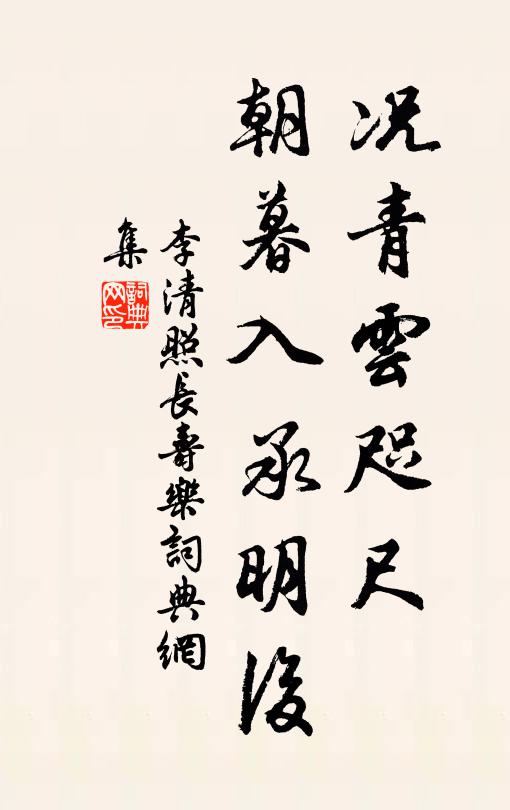 况青雲咫尺
朝暮入承明後
李清照長壽樂詞典網
集
詞典网印